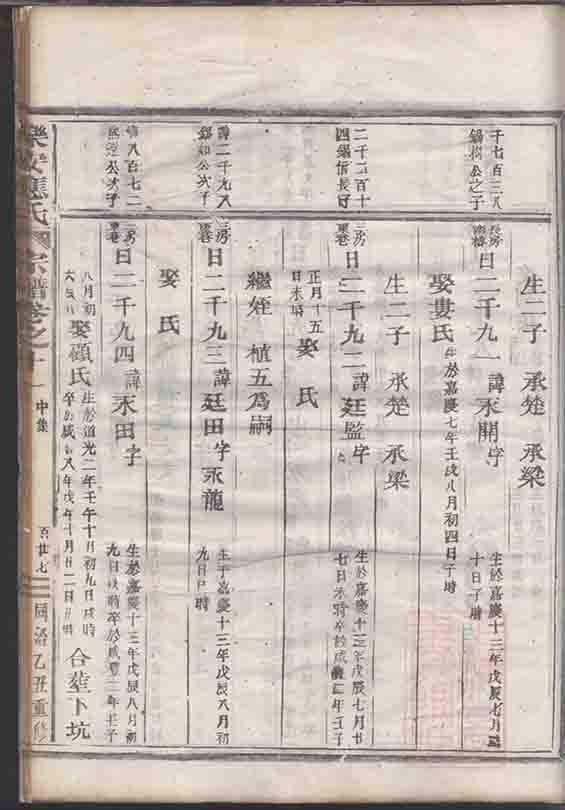 生二子 承楚 承梁
千七百三八
錫樹公之子
長房
日二千九一諱永開字
生於嘉慶十三年戊辰七月
十日子時
娶婁氏生於嘉慶七年壬戌八月初四日子時
生二子 承楚 承梁
二千二百十
四錫信長子
三房
日二千九二諱廷監字
生於嘉慶十三年戊辰七月廿
七日未時卒於咸豐二年壬子
正月十五
日未時
娶 氏
繼姪 植五爲嗣
諱二千九八
錫如公次子
三房
日二千九三諱廷田字永龍
生于嘉慶十三年戊辰八月初
九日 時
娶 氏
八百七二
公次子
三房
日二千九四諱永田字
生於嘉慶十三年戊辰八月初
九日 時卒於咸豐二年壬子
八月初
六
娶顧氏
生於道光二年壬午十月初九日戌時
卒於咸 八年戊午十月廿二日 時
合葬下坑
樂安應氏宗譜卷之十一 中集
百廿七
同治乙丑重修